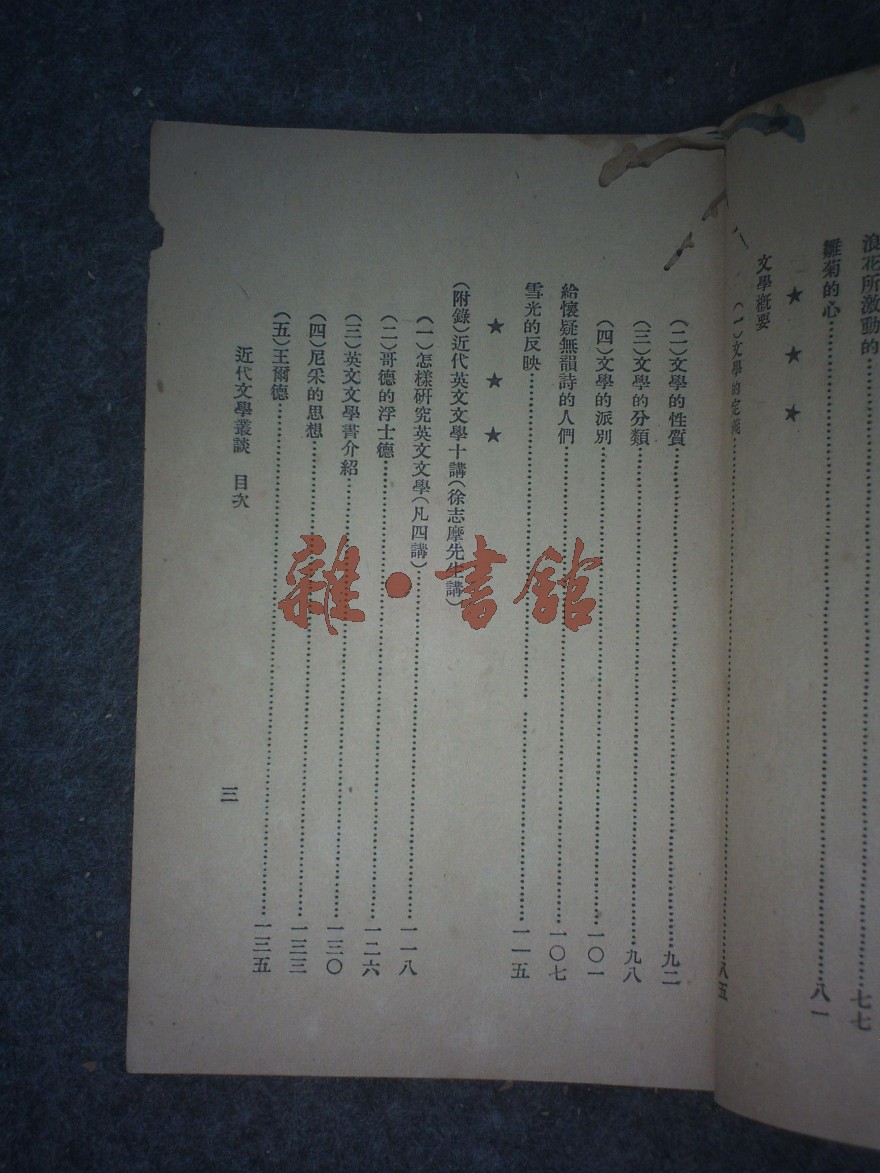 浪花所激動的……七七
雛菊的心……八一
★ ★ ★
文學概要
(一)文學的定義……八五
(二)文學的性質……九二
(三)文學的分類……九八
(四)文學的派別……一〇一
給懷疑無韻詩的人們……一〇七
雪光的反映……一一五
★ ★ ★
(附錄)近代英文文學十講(徐志摩先生講)
(一)怎樣研究英文文學(凡四講)……一一八
(二)哥德的浮士德……一二六
(三)英文文學書介紹……一三〇
(四)尼采的思想……一三三
(五)王爾德……一三五
近代文學叢談 目次
三
雜·書館